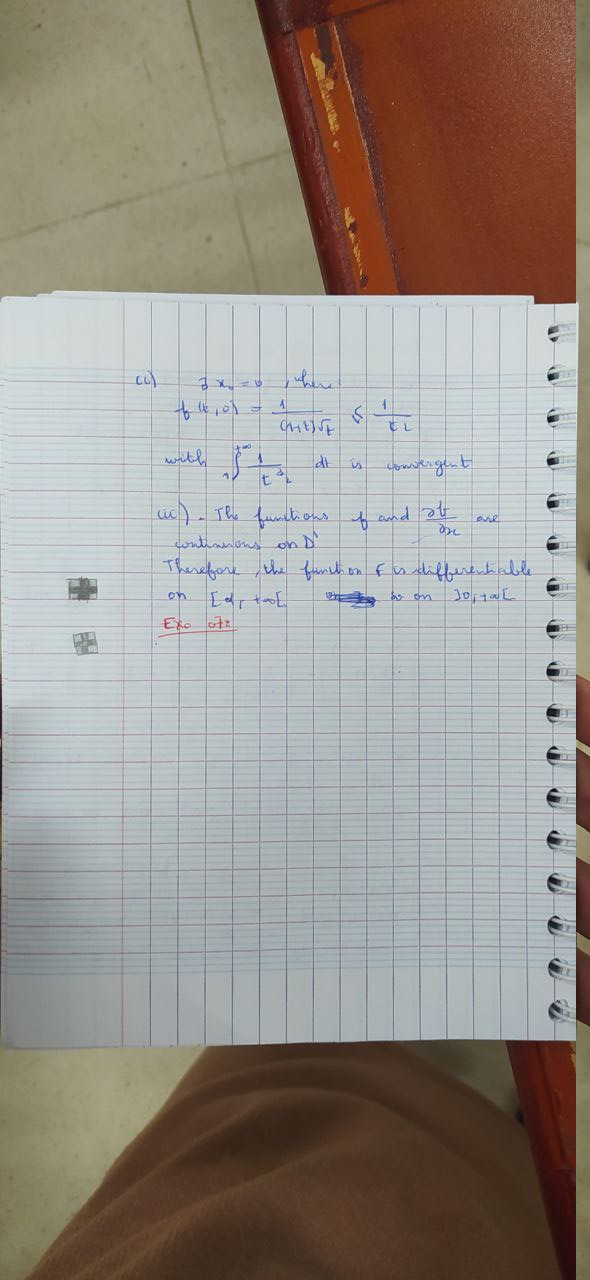 (ii) ∃ x₀ = 0 , where
f(t,0) = 1/((1+t)√t) ≤ 1/t
with ∫₁^{+∞} 1/t^{3/2} dt is convergent
(iii) - The functions f and ∂f/∂x are
continuous on D'
Therefore , the function F is differentiable
on [α, +∞[ so on ]0, +∞[
Exo 07: